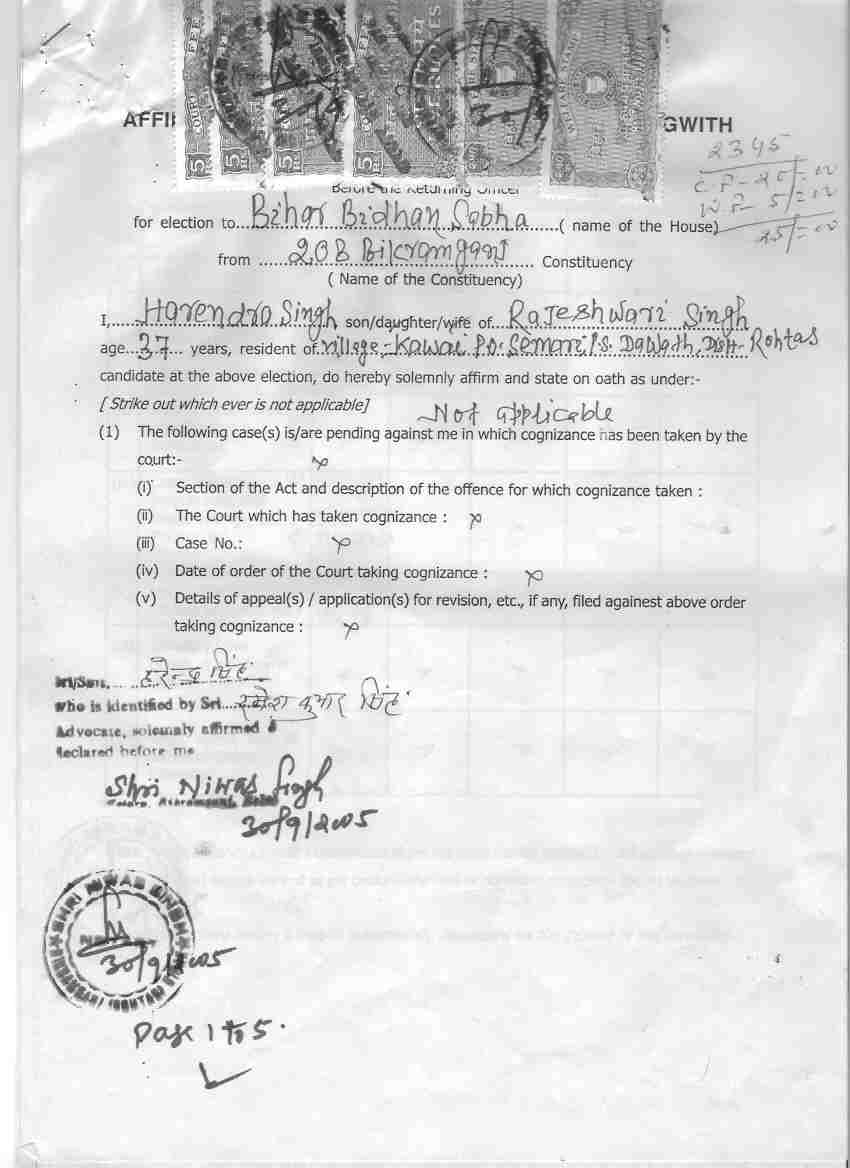 AFFI GWITH
2345
Before the Returning Officer
for election to Bihar Bidhan Sabha ( name of the House)
25/=00
from 208 Bikramganj Constituency
( Name of the Constituency)
I, Harendra Singh son/daughter/wife of Rajeshwari Singh
age 37 years, resident of Village-Kawai P.O. Semari P.S. Dawath, Distt- Rohtas
candidate at the above election, do hereby solemnly affirm and state on oath as under:-
[ Strike out which ever is not applicable] Not applicable
(1) The following case(s) is/are pending against me in which cognizance has been taken by the
court:- x
(i) Section of the Act and description of the offence for which cognizance taken :
(ii) The Court which has taken cognizance : x
(iii) Case No.: x
(iv) Date of order of the Court taking cognizance : x
(v) Details of appeal(s) / application(s) for revision, etc., if any, filed againest above order
taking cognizance : x
हरेन्द्र सिंह
who is identified by Sri रमेश कुमार सिंह
Advocate, solemnly affirmed &
declared before me
Shri Niwas Singh
30/9/2005
SHRI NIWAS SINGH
30/9/2005
Page 1 to 5.